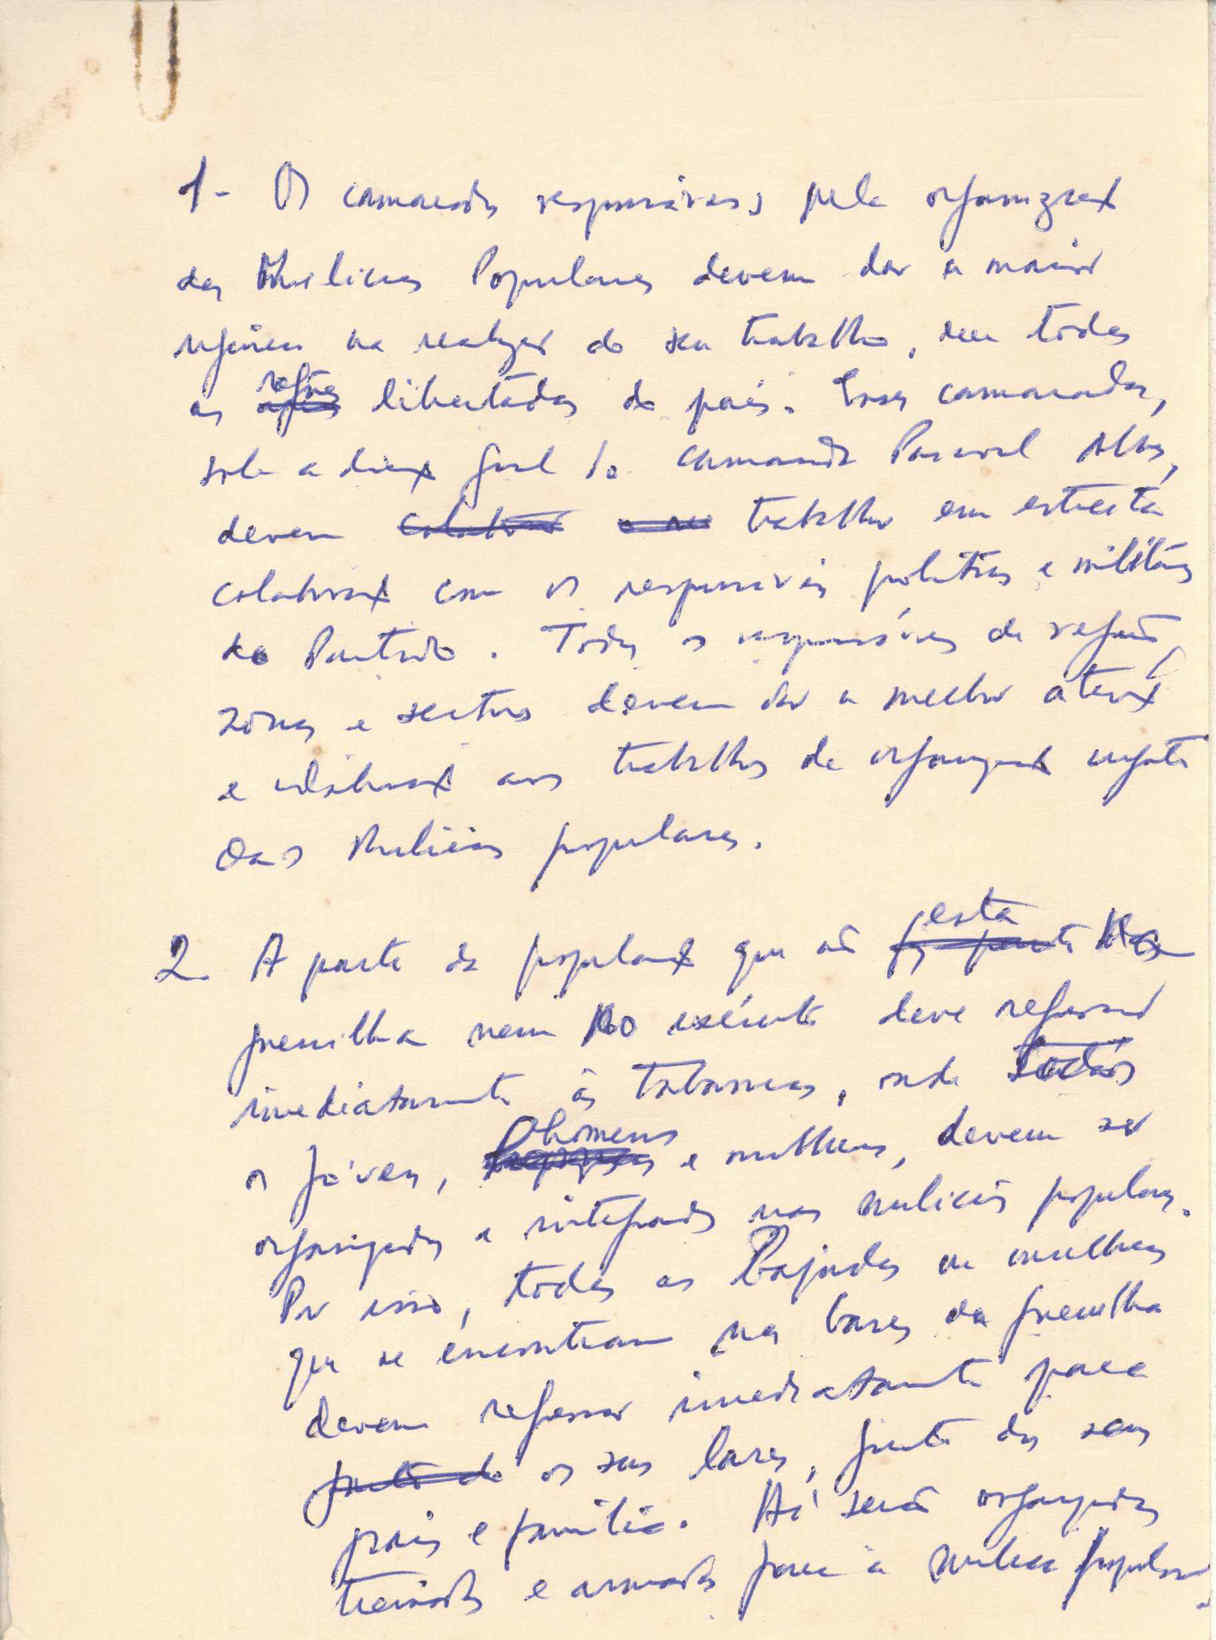 1- Os camaradas responsáveis pela organização
das Milicias Populares devem dar a maior
urgência na realização do seu trabalho, em todas
as regiões libertadas do país. Esses camaradas,
sob a direcção geral do camarada Pascoal Alves,
devem trabalhar em estreita
colaboração com os responsáveis politicos e militares
do Partido. Todos os responsáveis de região,
zonas e sectores devem dar a melhor atenção
e colaboração aos trabalhos de organização urgente
das Milicias populares.
2. A parte da população que não está na
guerrilha nem no exército deve regressar
imediatamente às tabancas, onde todos
os jóvens, homens e mulheres, devem ser
organizados e integrados nas milicias populares.
Por isso, todas as Bajudas ou mulheres
que se encontram nas bases da guerrilha
devem regressar imediatamente para
os seus lares, junto dos seus
pais e familia. Aí serão organizadas
treinadas e armadas para a milicia popular.